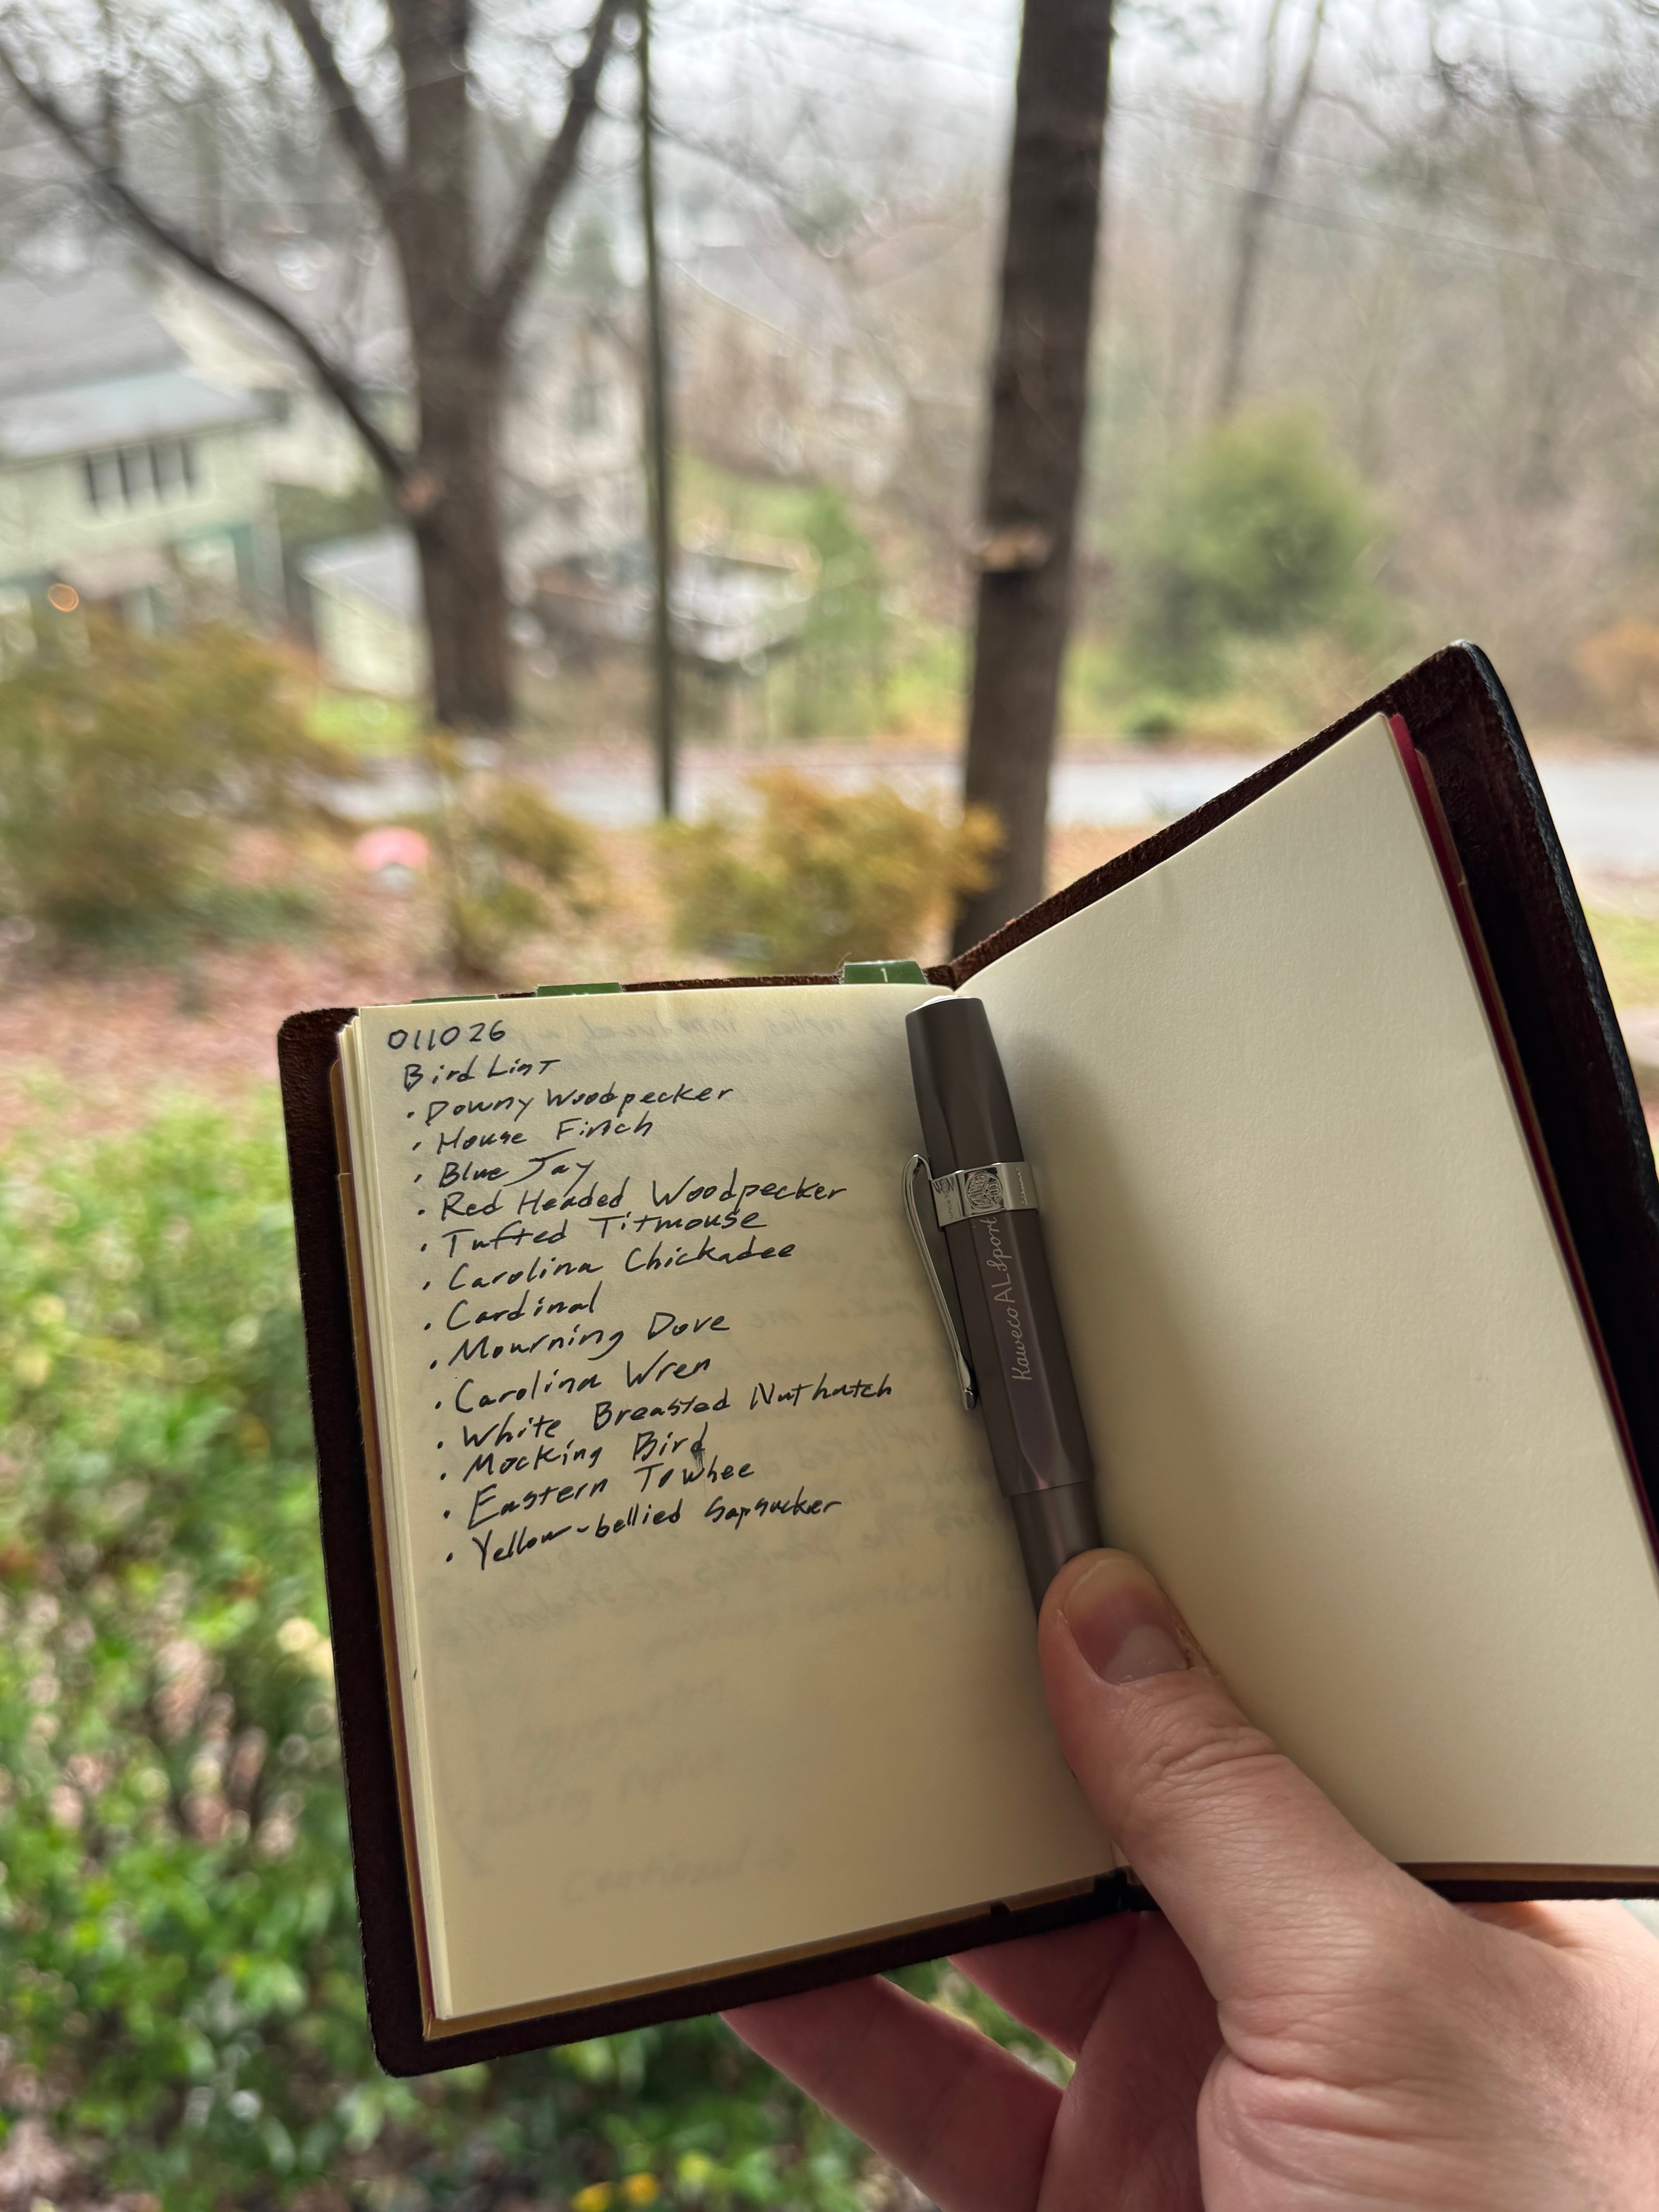 011026
Bird List
· Downy Woodpecker
· House Finch
· Blue Jay
· Red Headed Woodpecker
· Tufted Titmouse
· Carolina Chickadee
· Cardinal
· Mourning Dove
· Carolina Wren
· White Breasted Nuthatch
· Mocking Bird
· Eastern Towhee
· Yellow-bellied Sapsucker
Kaweco AL Sport